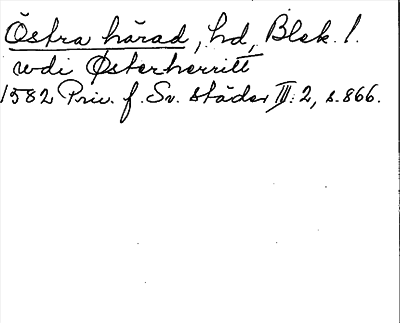 Östra härad, hd, Blek. l.
udi Østerherritt
1582 Priv. f. Sv. städer III:2, s. 866.